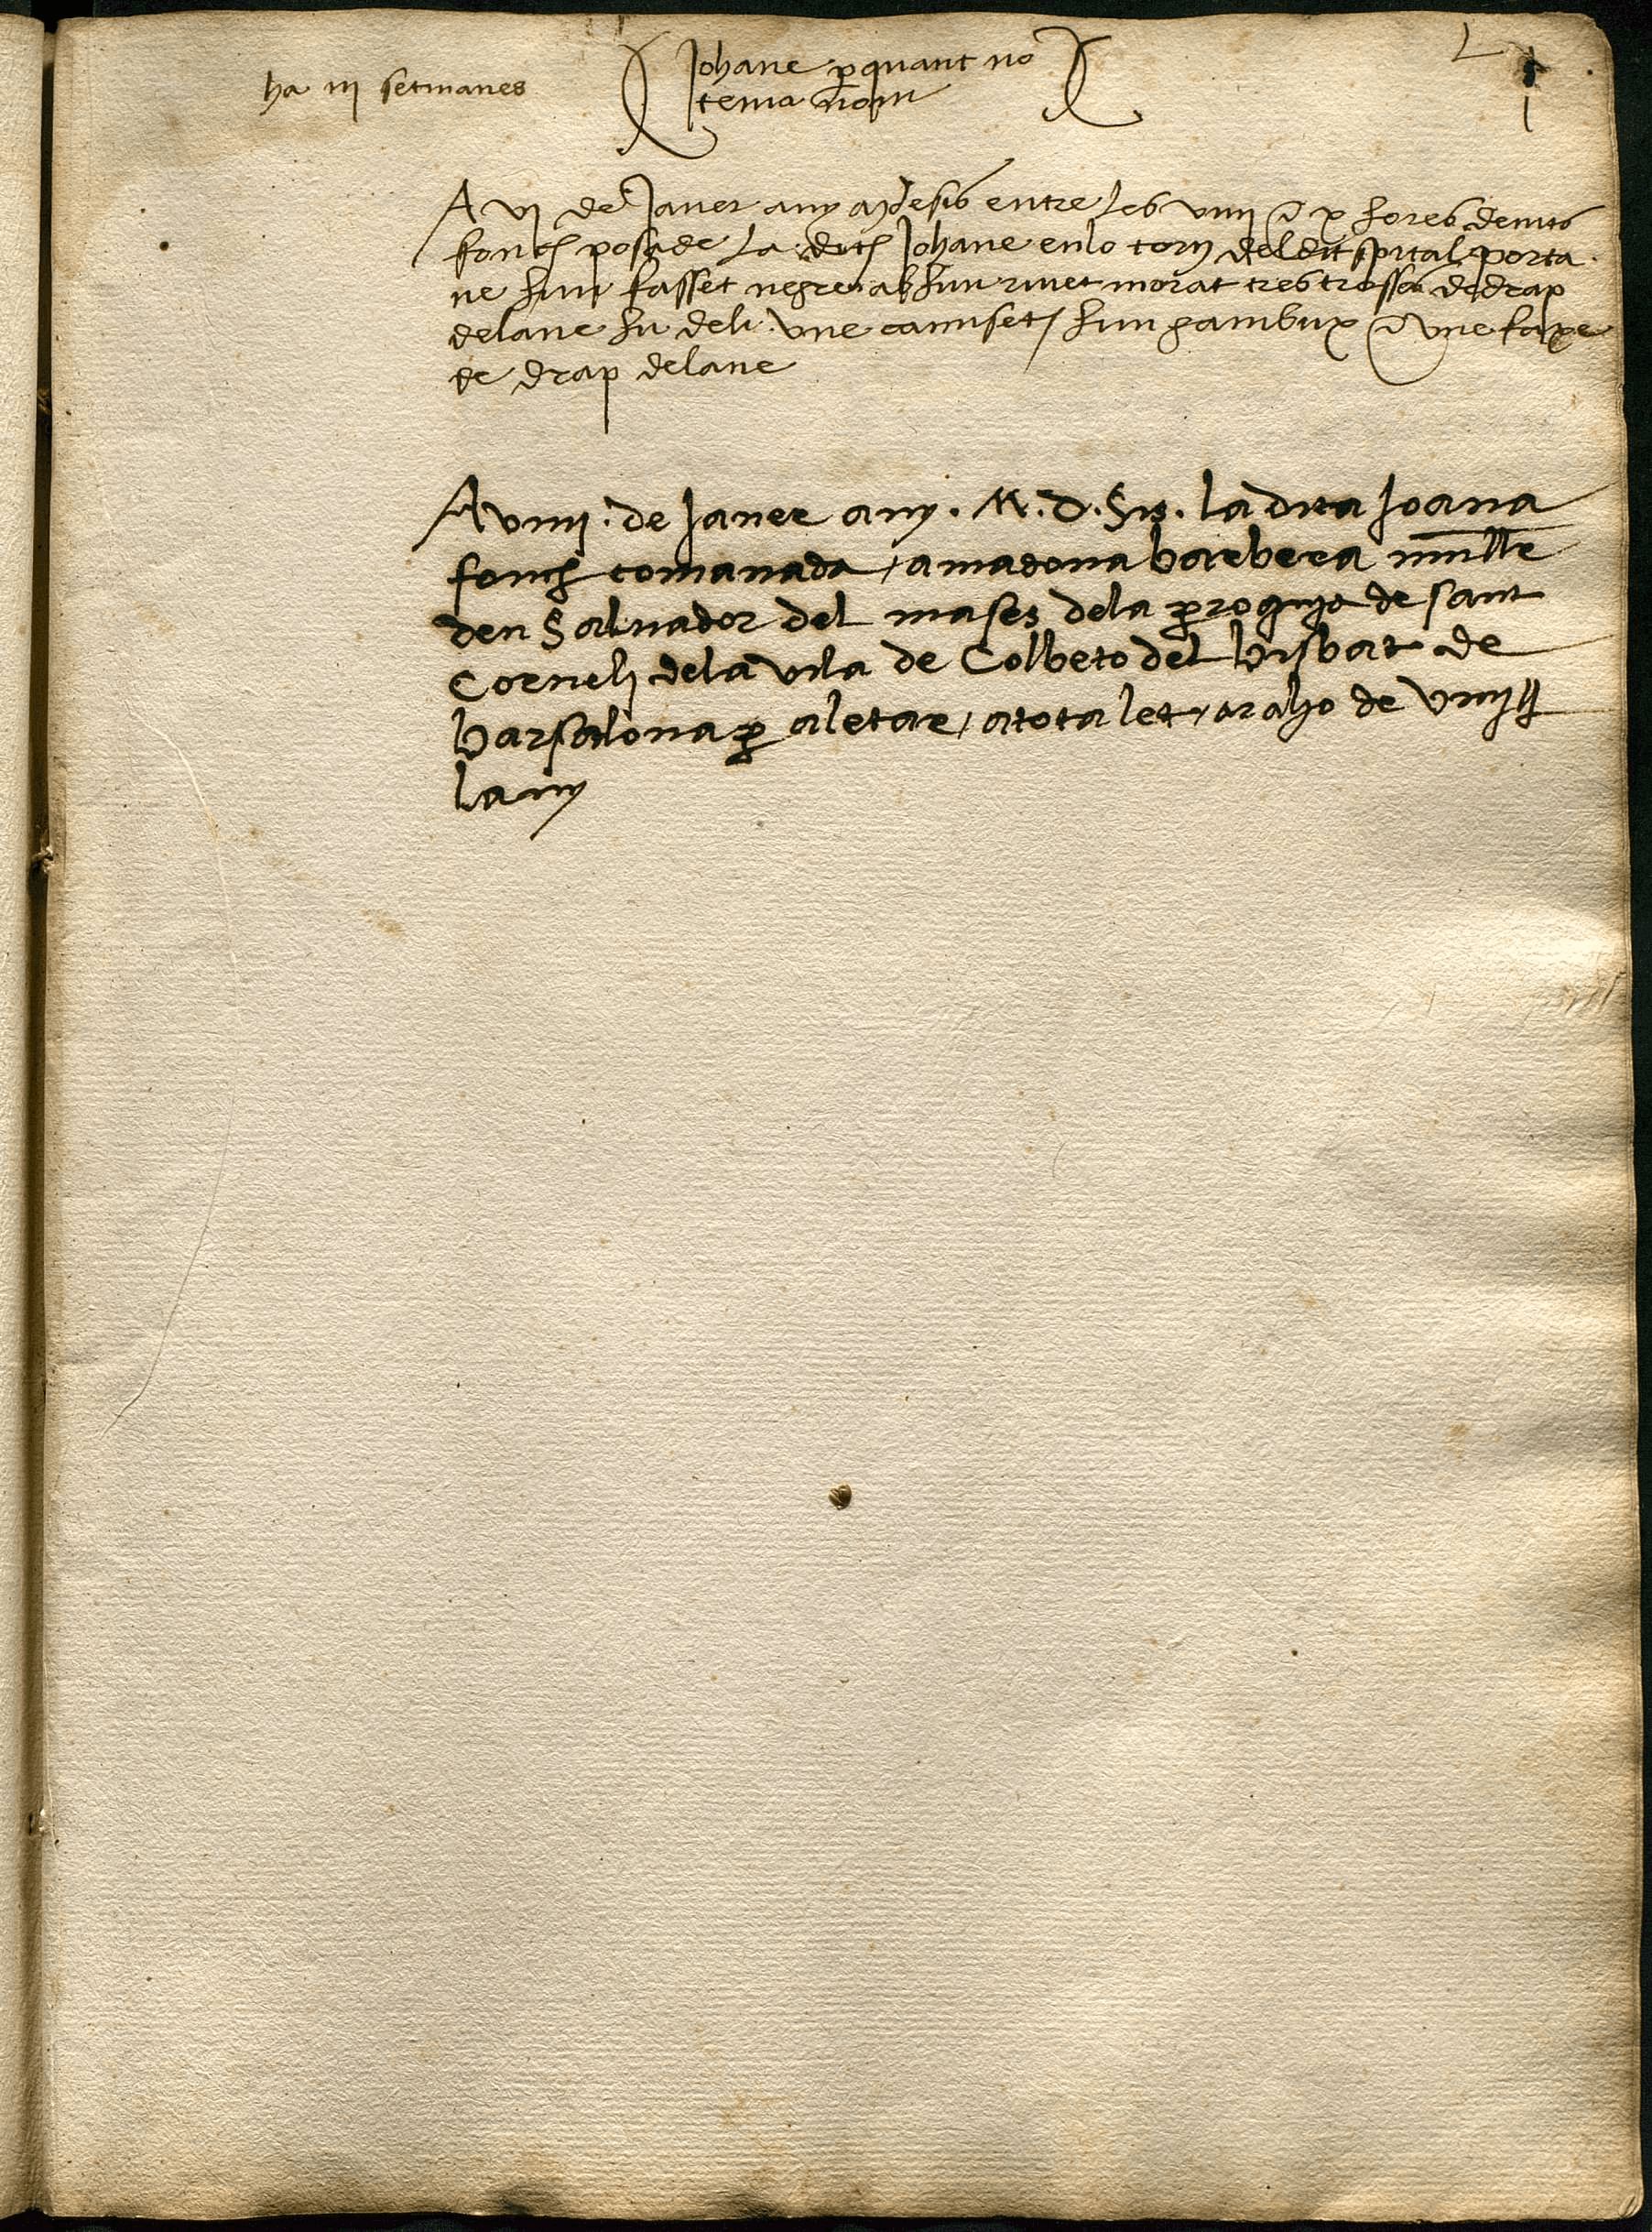 ha iii setmanes
Johane perquant no
tenia nom
A vi de Janer any mdesis entre les viiii e x hores de nits
fonch posade la dita Johane en lo torn del dit spital porta
ne hun fasset negre ab hun rivet morat tres trossos de drap
de lane hu de li une camiseta hun gambux e une faxe
de drap de lane
A viiii de Janer any . M.D.Sis. la dita Joana
fonch comanada / a madona barbera muller
den Salvador del mases dela proquja de sant
Corneli dela vila de Colbeto del bisbat de
barsalona per aletar / a tota let / a raho de viiii ll
lany